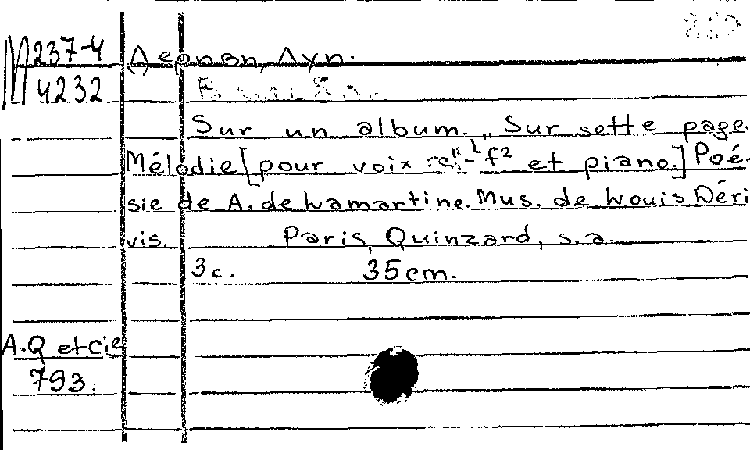 М 237-4
4232
Sur un album. „Sur sette page.
Mélodie [pour voix re¹-f² et piano.] Poé-
sie de A. de Lamartine. Mus. de Louis Déri
vis. Paris, Quinzard, s.a.
3 c. 35 cm.
A.Q et Cie
793.